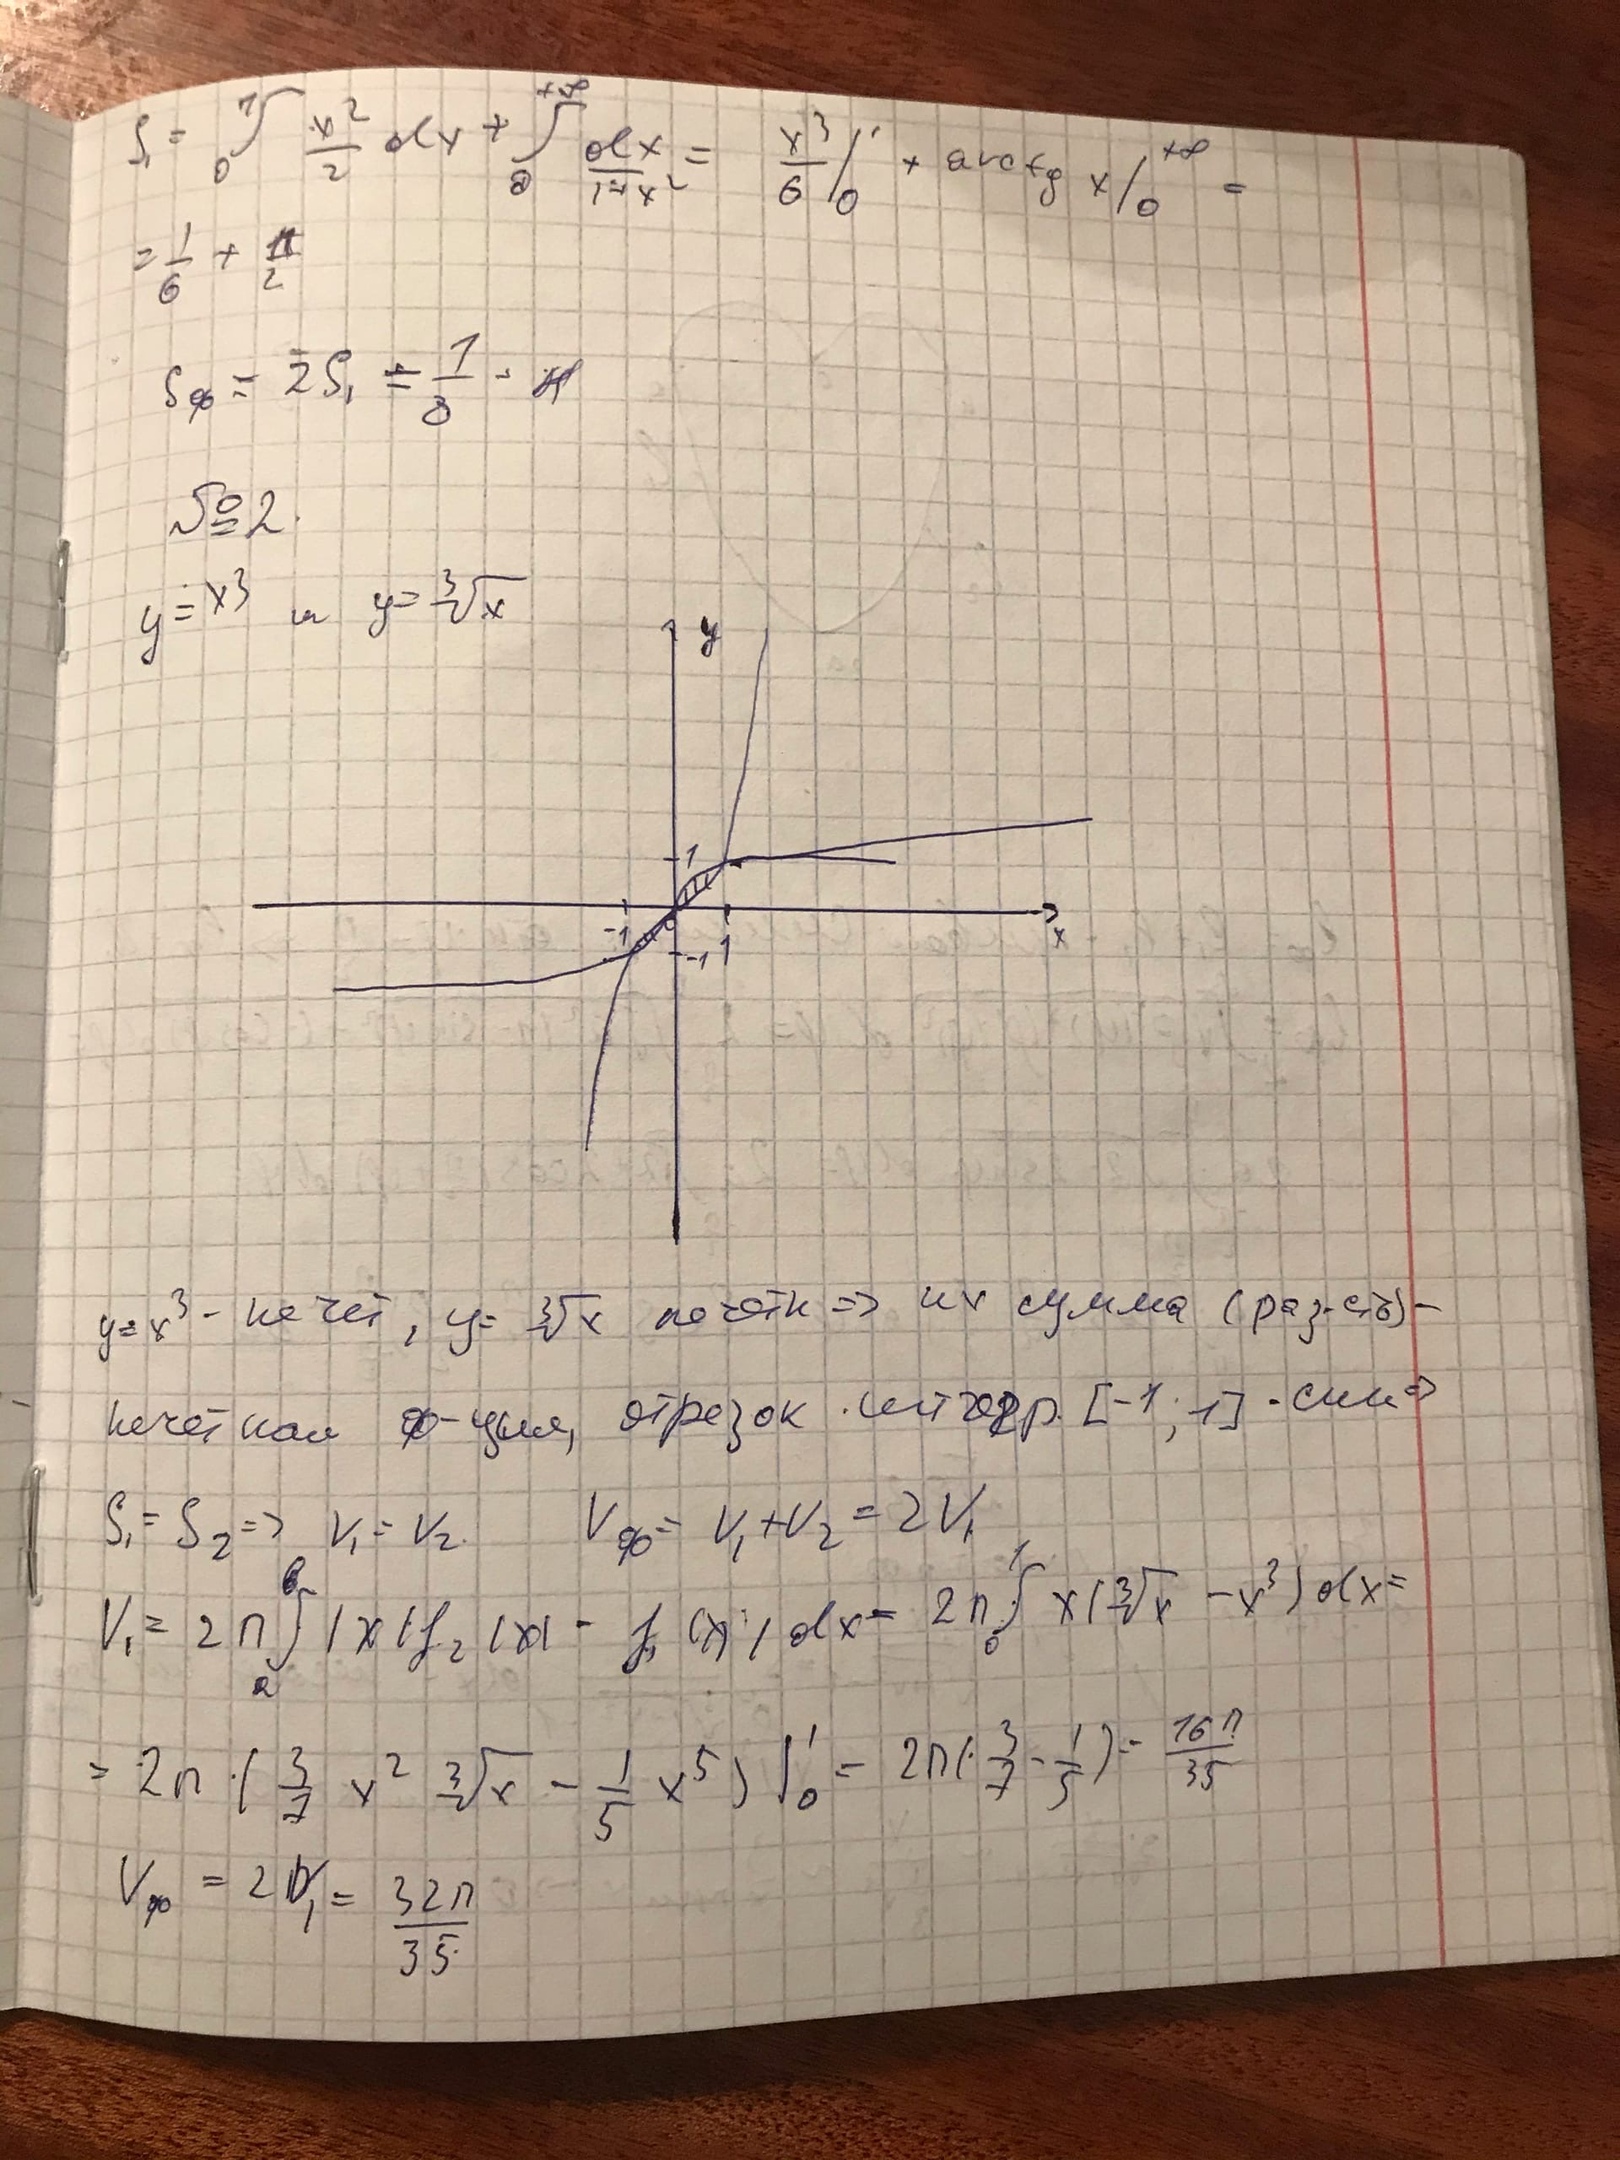 S₁ = ₀∫¹ x²/2 dx + ₀∫^{+∞} dx/(1+x²) = x³/6 |₀¹ + arctg x |₀^{+∞} =
= 1/6 + π/2
Sф = 2S₁ = 1/3 - π
№2.
y = x³ и y = ³√x
y
1
-1 0 1 x
-1
y = x³ - нечёт, y = ³√x нечётн => их сумма (раз-сть) -
нечётная ф-ция, отрезок интегр. [-1; 1] - сим =>
S₁ = S₂ => V₁ = V₂. Vф = V₁ + V₂ = 2V₁
V₁ = 2π ∫ₐᵇ |x| f₂(x) - f₁(x) | dx = 2π ₀∫¹ x(³√x - x³) dx =
= 2π · (3/7 x² ³√x - 1/5 x⁵) |₀¹ = 2π(3/7 - 1/5) = 16π/35
Vф = 2V₁ = 32π/35